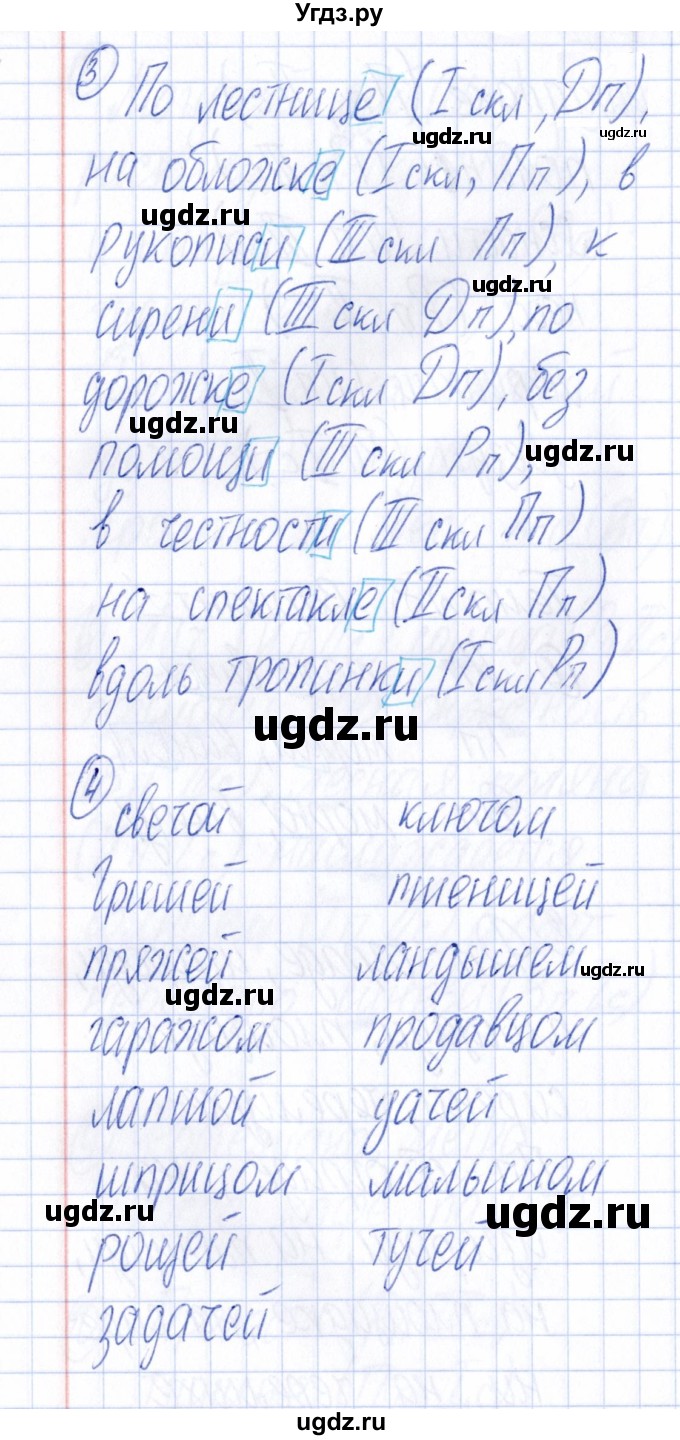 Угдз.ру
3 По лестнице (I скл, Дп),
ugdz.ru ugdz.ru
на обложке (I скл, Пп), в
ugdz.ru
рукописи (III скл Пп), к
ugdz.ru
сирени (III скл Дп), по
дорожке (I скл Дп), без
ugdz.ru
помощи (III скл Рп),
ugdz.ru
в честности (III скл Пп)
на спектакле (II скл Пп)
вдоль тропинки (I скл Рп)
ugdz.ru
4 свечой ключом
Гришей пшеницей
пряжей ландышем
ugdz.ru
ugdz.ru
гаражом продавцом
лапшой уачей
шприцом малышом
ugdz.ru ugdz.ru
рощей тучей
задачей
ugdz.ru